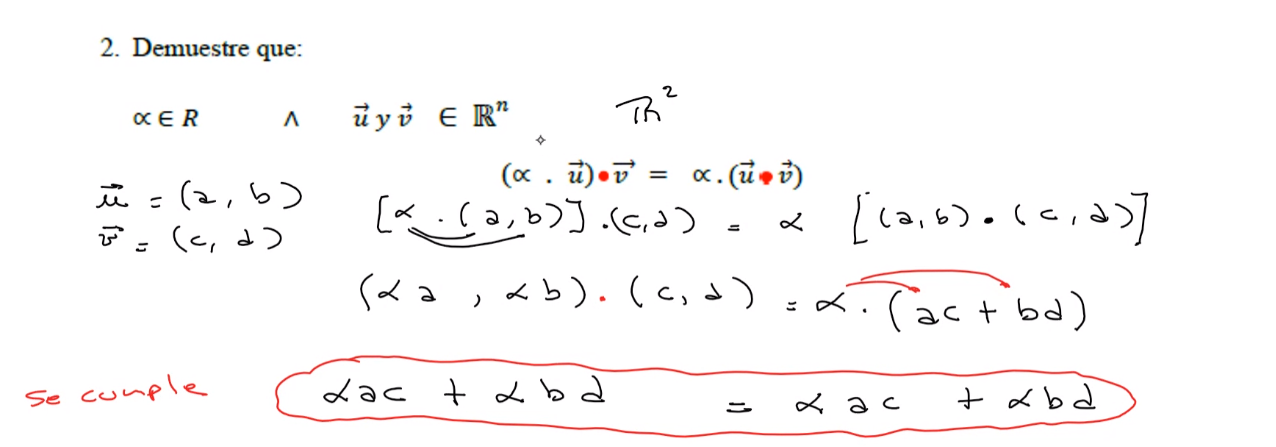 2. Demuestre que:
∝ ∈ R ∧ u⃗ y v⃗ ∈ ℝⁿ ℝ²
(∝ . u⃗)•v⃗ = ∝.(u⃗•v⃗)
u⃗ = (a, b)
[∝ . (a,b)] .(c,d) = ∝ [(a,b) . (c,d)]
v⃗ = (c, d)
(∝a , ∝b) . (c, d) = ∝ . (ac + bd)
se cumple ∝ac + ∝bd = ∝ac + ∝bd